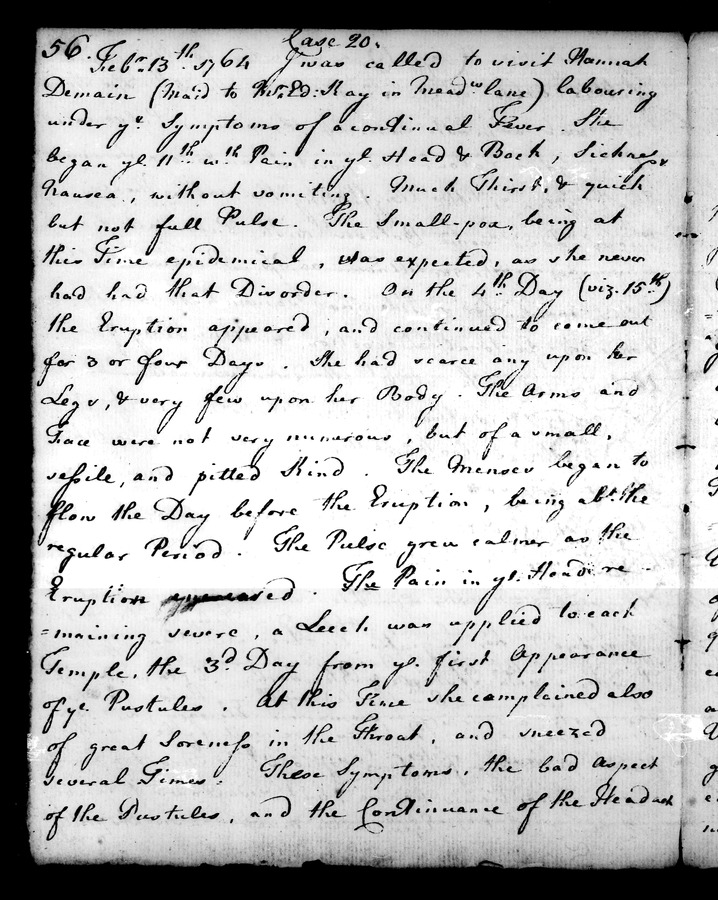 56. Case 20.
Febr. 13th. 1764 I was called to visit Hannah
Demain (Maid to Mr. Ed: Kay in Meadw lane) labouring
under ye. Symptoms of a continual Fever. She
began ye. 11th wth Pain in ye. Head & Back, Sickness,
Nausea, without vomiting. Much Thirst, & quick
but not full Pulse. The Small-pox, being at
this Time epidemical, was expected, as she never
had had that Disorder. On the 4th. Day (viz. 15th.)
the Eruption appeared, and continued to come out
for 3 or four Days. She had scarce any upon her
Legs, & very few upon her Body. The Arms and
Face were not very numerous, but of a small,
sessile, and pitted Kind. The Menses began to
flow the Day before the Eruption, being abt. the
regular Period. The Pulse grew calmer as the
Eruption appeared. The Pain in ye. Head re-
=maining severe, a Leech was applied to each
Temple, the 3d Day from ye. first Appearance
of ye. Pustules. At this Time she complained also
of great Soreness in the Throat, and sneezed
several Times. These Symptoms, the bad Aspect
of the Pustules, and the Continuance of the Headach